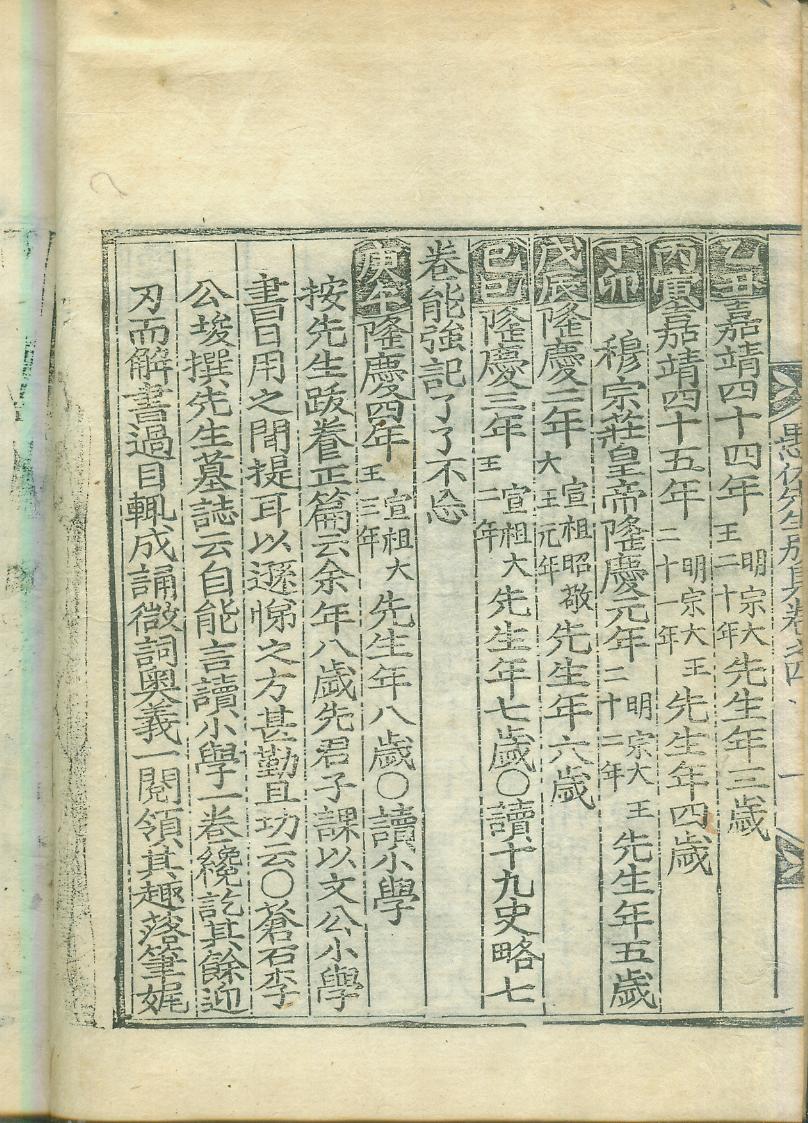 愚伏先生別集卷之四 一
乙丑嘉靖四十四年明宗大王二十年先生年三歲
丙寅嘉靖四十五年明宗大王二十一年先生年四歲
丁卯穆宗莊皇帝隆慶元年明宗大王二十二年先生年五歲
戊辰隆慶二年宣祖昭敬大王元年先生年六歲
己巳隆慶三年宣祖大王二年先生年七歲○讀十九史略七
卷能強記了了不忘
庚午隆慶四年宣祖大王三年先生年八歲○讀小學
按先生跋養正篇云余年八歲先君子課以文公小學
書日用之間提耳以遜悌之方甚勤且功云○蒼石李
公埈撰先生墓誌云自能言讀小學一卷纔訖其餘迎
刃而解書過目輒成誦微詞奧義一閱領其趣落筆娓